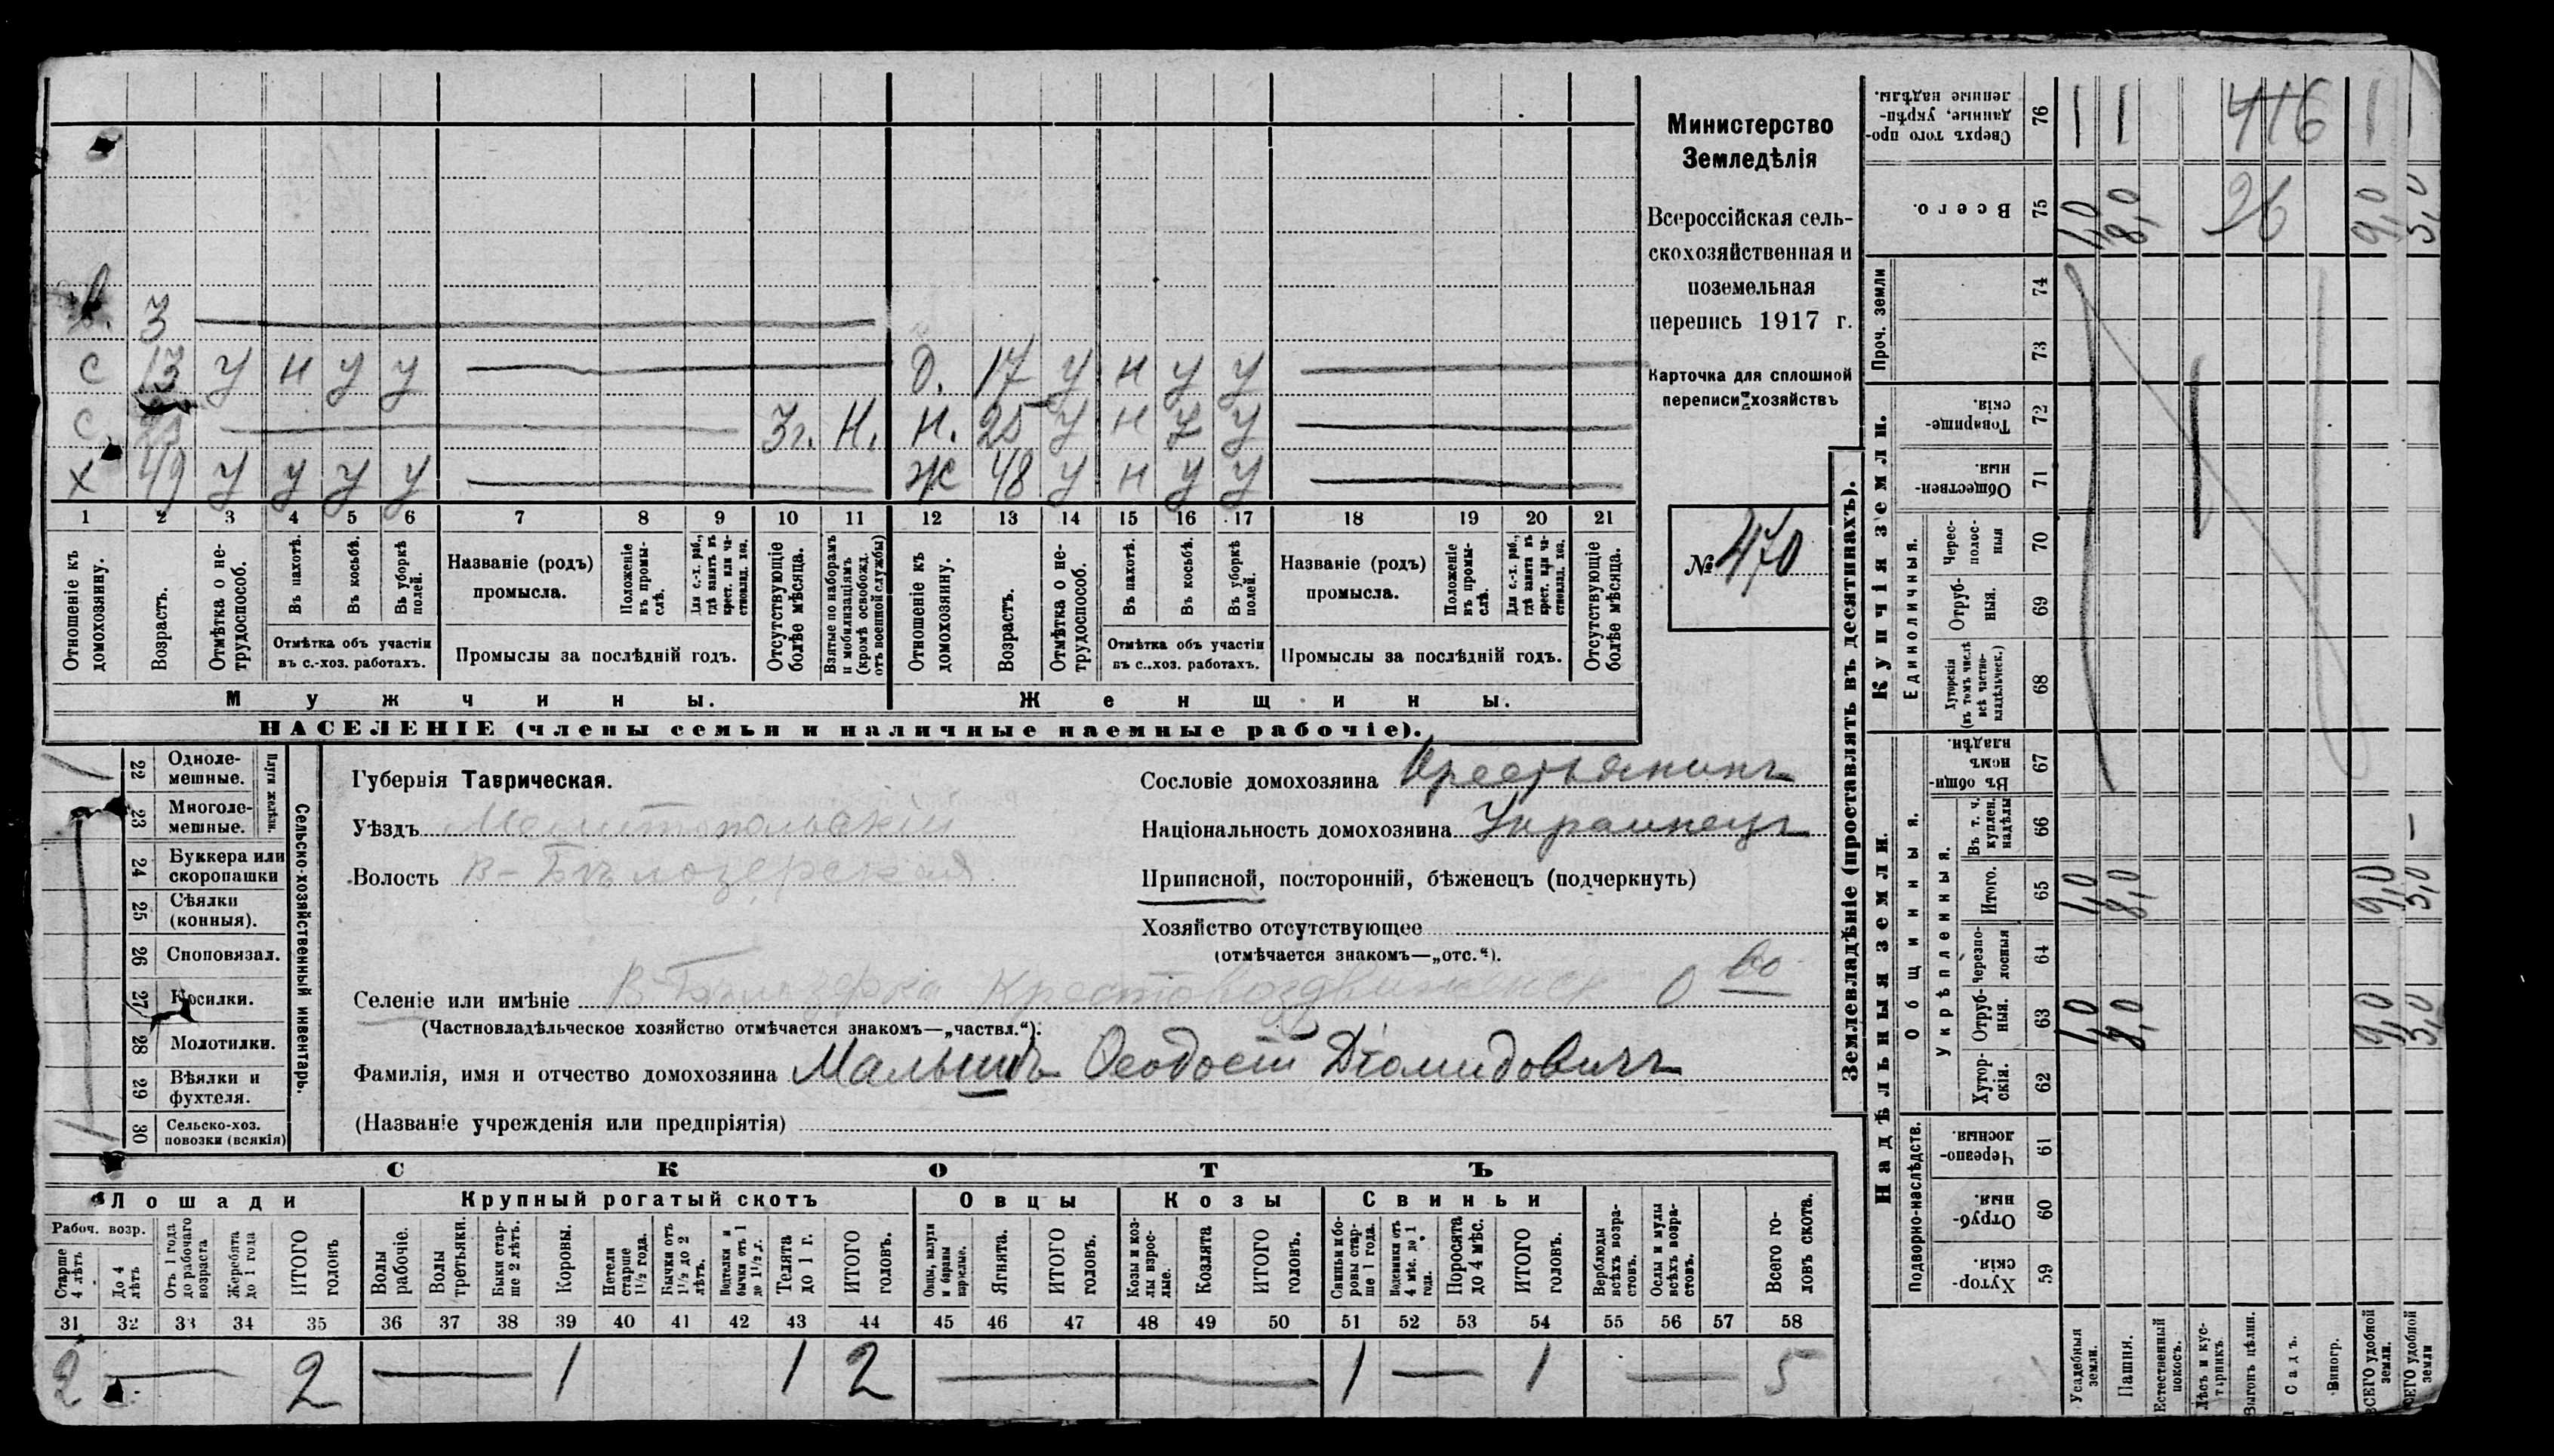 Министерство
Земледѣлія
Всероссійская сель-
скохозяйственная и
поземельная
перепись 1917 г.
Карточка для сплошной
переписи хозяйствъ
№ 470
3
С 13 У Н У У
О. 17 У Н У У
С. 3г. Н.
Н. 25 У Н У У
Х 49 У У У У
Ж 48 У Н У У
1 2 3 4 5 6 7 8 9 10 11 12 13 14 15 16 17 18 19 20 21
Отношеніе къ домохозяину.
Возрастъ.
Отмѣтка о не-трудоспособ.
Въ пахотѣ.
Въ косьбѣ.
Въ уборкѣ полей.
Отмѣтка объ участіи
въ с.-хоз. работахъ.
Названіе (родъ)
промысла.
Положеніе въ промы-слѣ.
Для с.-х. раб., гдѣ занятъ въ крест. или ча-стновлад. хоз.
Промыслы за послѣдній годъ.
Отсутствующіе болѣе мѣсяца.
Взятые по наборамъ и мобилизаціямъ (кромѣ освобожд. отъ военной службы)
Отношеніе къ домохозяину.
Возрастъ.
Отмѣтка о не-трудоспособ.
Въ пахотѣ.
Въ косьбѣ.
Въ уборкѣ полей.
Отмѣтка объ участіи
въ с.-хоз. работахъ.
Названіе (родъ)
промысла.
Положеніе въ промы-слѣ.
Для с.-х. раб., гдѣ занята въ крест. или ча-стновлад. хоз.
Промыслы за послѣдній годъ.
Отсутствующіе болѣе мѣсяца.
Мужчины.
Женщины.
НАСЕЛЕНІЕ (члены семьи и наличные наемные рабочіе).
Сельско-хозяйственный инвентарь.
Плуги желѣзн.
22 Одноле-мешные.
23 Многоле-мешные.
24 Буккера или скоропашки
25 Сѣялки (конныя).
26 Сноповязал.
27 Косилки.
28 Молотилки.
29 Вѣялки и фухтеля.
30 Сельско-хоз. повозки (всякія)
Губернія Таврическая.
Уѣздъ Мелитопольскій
Волость В-Бѣлозерская
Сословіе домохозяина Крестьянинъ
Національность домохозяина Украинецъ
Приписной, посторонній, бѣженецъ (подчеркнуть)
Хозяйство отсутствующее
(отмѣчается знакомъ—„отс.“).
Селеніе или имѣніе В-Бѣлозерка Крестовоздвиженск о во
(Частновладѣльческое хозяйство отмѣчается знакомъ—„частвл.“).
Фамилія, имя и отчество домохозяина Малышъ Ѳеодосій Діомидовичъ
(Названіе учрежденія или предпріятія)
СКОТЪ
Лошади
Крупный рогатый скотъ
Овцы
Козы
Свиньи
Рабоч. возр.
Старше 4 лѣтъ
До 4 лѣтъ
Отъ 1 года до рабочаго возраста
Жеребята до 1 года
ИТОГО головъ
Волы рабочіе.
Волы третьяки.
Быки стар-ше 2 лѣтъ.
Коровы.
Нетели старше 1½ года.
Бычки отъ 1½ до 2 лѣтъ.
Подтелки и бычки отъ 1 до 1½ г.
Телята до 1 г.
ИТОГО головъ.
Овцы, валухи и бараны взрослые.
Ягнята.
ИТОГО головъ.
Козы и коз-лы взрос-лые.
Козлята
ИТОГО головъ.
Свиньи и бо-ровы стар-ше 1 года.
Подсвинки отъ 4 мѣс. до 1 года.
Поросята до 4 мѣс.
ИТОГО головъ.
Верблюды всѣхъ возра-стовъ.
Ослы и мулы всѣхъ возра-стовъ.
Всего го-ловъ скота.
31 32 33 34 35 36 37 38 39 40 41 42 43 44 45 46 47 48 49 50 51 52 53 54 55 56 57 58
2 — 2 — 1 1 2 — 1 — 1 — 5
Землевладѣніе (проставлять въ десятинахъ).
Сверхъ того про-данные, укрѣп-ленные надѣлы. 76
416
Всего. 75 1,0 8,0 9,0
Проч. земли 74 73
Купчія земли.
Товарище-скія. 72
Обществен-ныя. 71
Единоличныя.
Черес-полос-ныя 70
Отруб-ныя. 69
Хуторскія (въ томъ числѣ всѣ частно-владѣльческ.) 68
Надѣльныя земли.
Въ общин-номъ владѣн. 67
Общинныя.
Укрѣпленныя.
Въ т. ч. куплен. надѣлы 66 —
Итого. 65 1,0 8,0 9,0
Черезпо-лосныя 64
Отруб-ныя. 63 1,0 8,0 9,0
Хутор-скія. 62
Подворно-наслѣдств.
Черезпо-лосныя. 61
Отруб-ныя. 60
Хутор-скія. 59
Усадебныя земли.
Пашня.
Естественный покосъ.
Лѣсъ и кус-тарникъ.
Выгонъ цѣлин.
Садъ.
Виногр.
ВСЕГО удобной земли.
ВСЕГО удобной земли